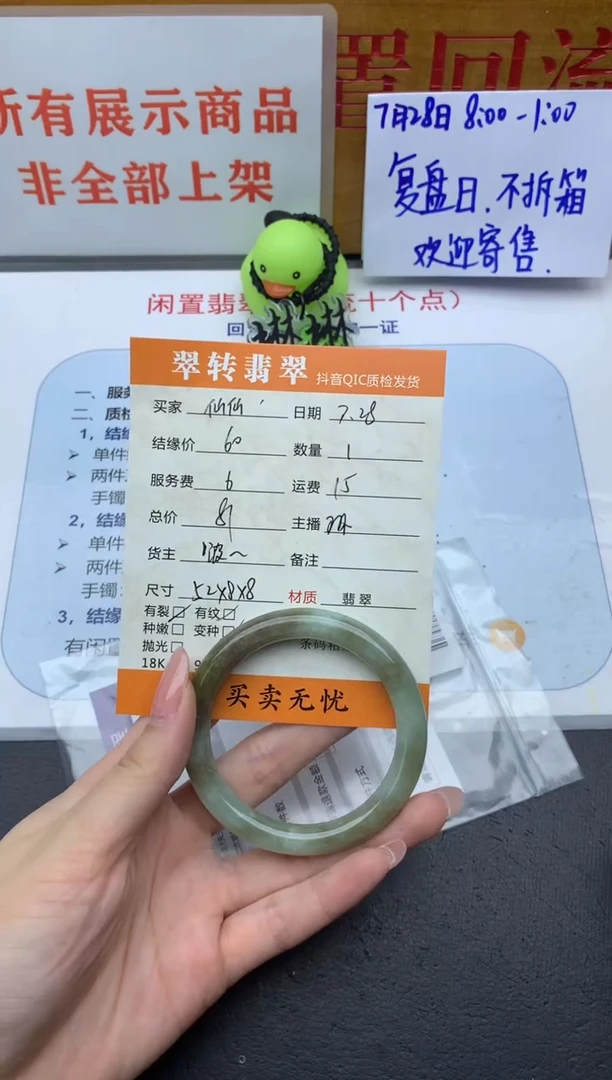 所有展示商品
非全部上架
置回流
7月28日 8:00-1:00
复盘日.不拆箱
欢迎寄售.
闲置翡翠
十个点）
一证
琳琳
翠转翡翠 抖音QIC质检发货
买家 仙仙 日期 7.28
结缘价 60 数量 1
服务费 6 运费 15
总价 81 主播 琳
货主 备注
尺寸 52X8X8 材质 翡翠
有裂 有纹
种嫩 变种
抛光
18K
买卖无忧
一、服务
二、质检
1，结缘
单件
两件
手镯
2，结缘
单件
两件
手镯
3，结缘
有闲置